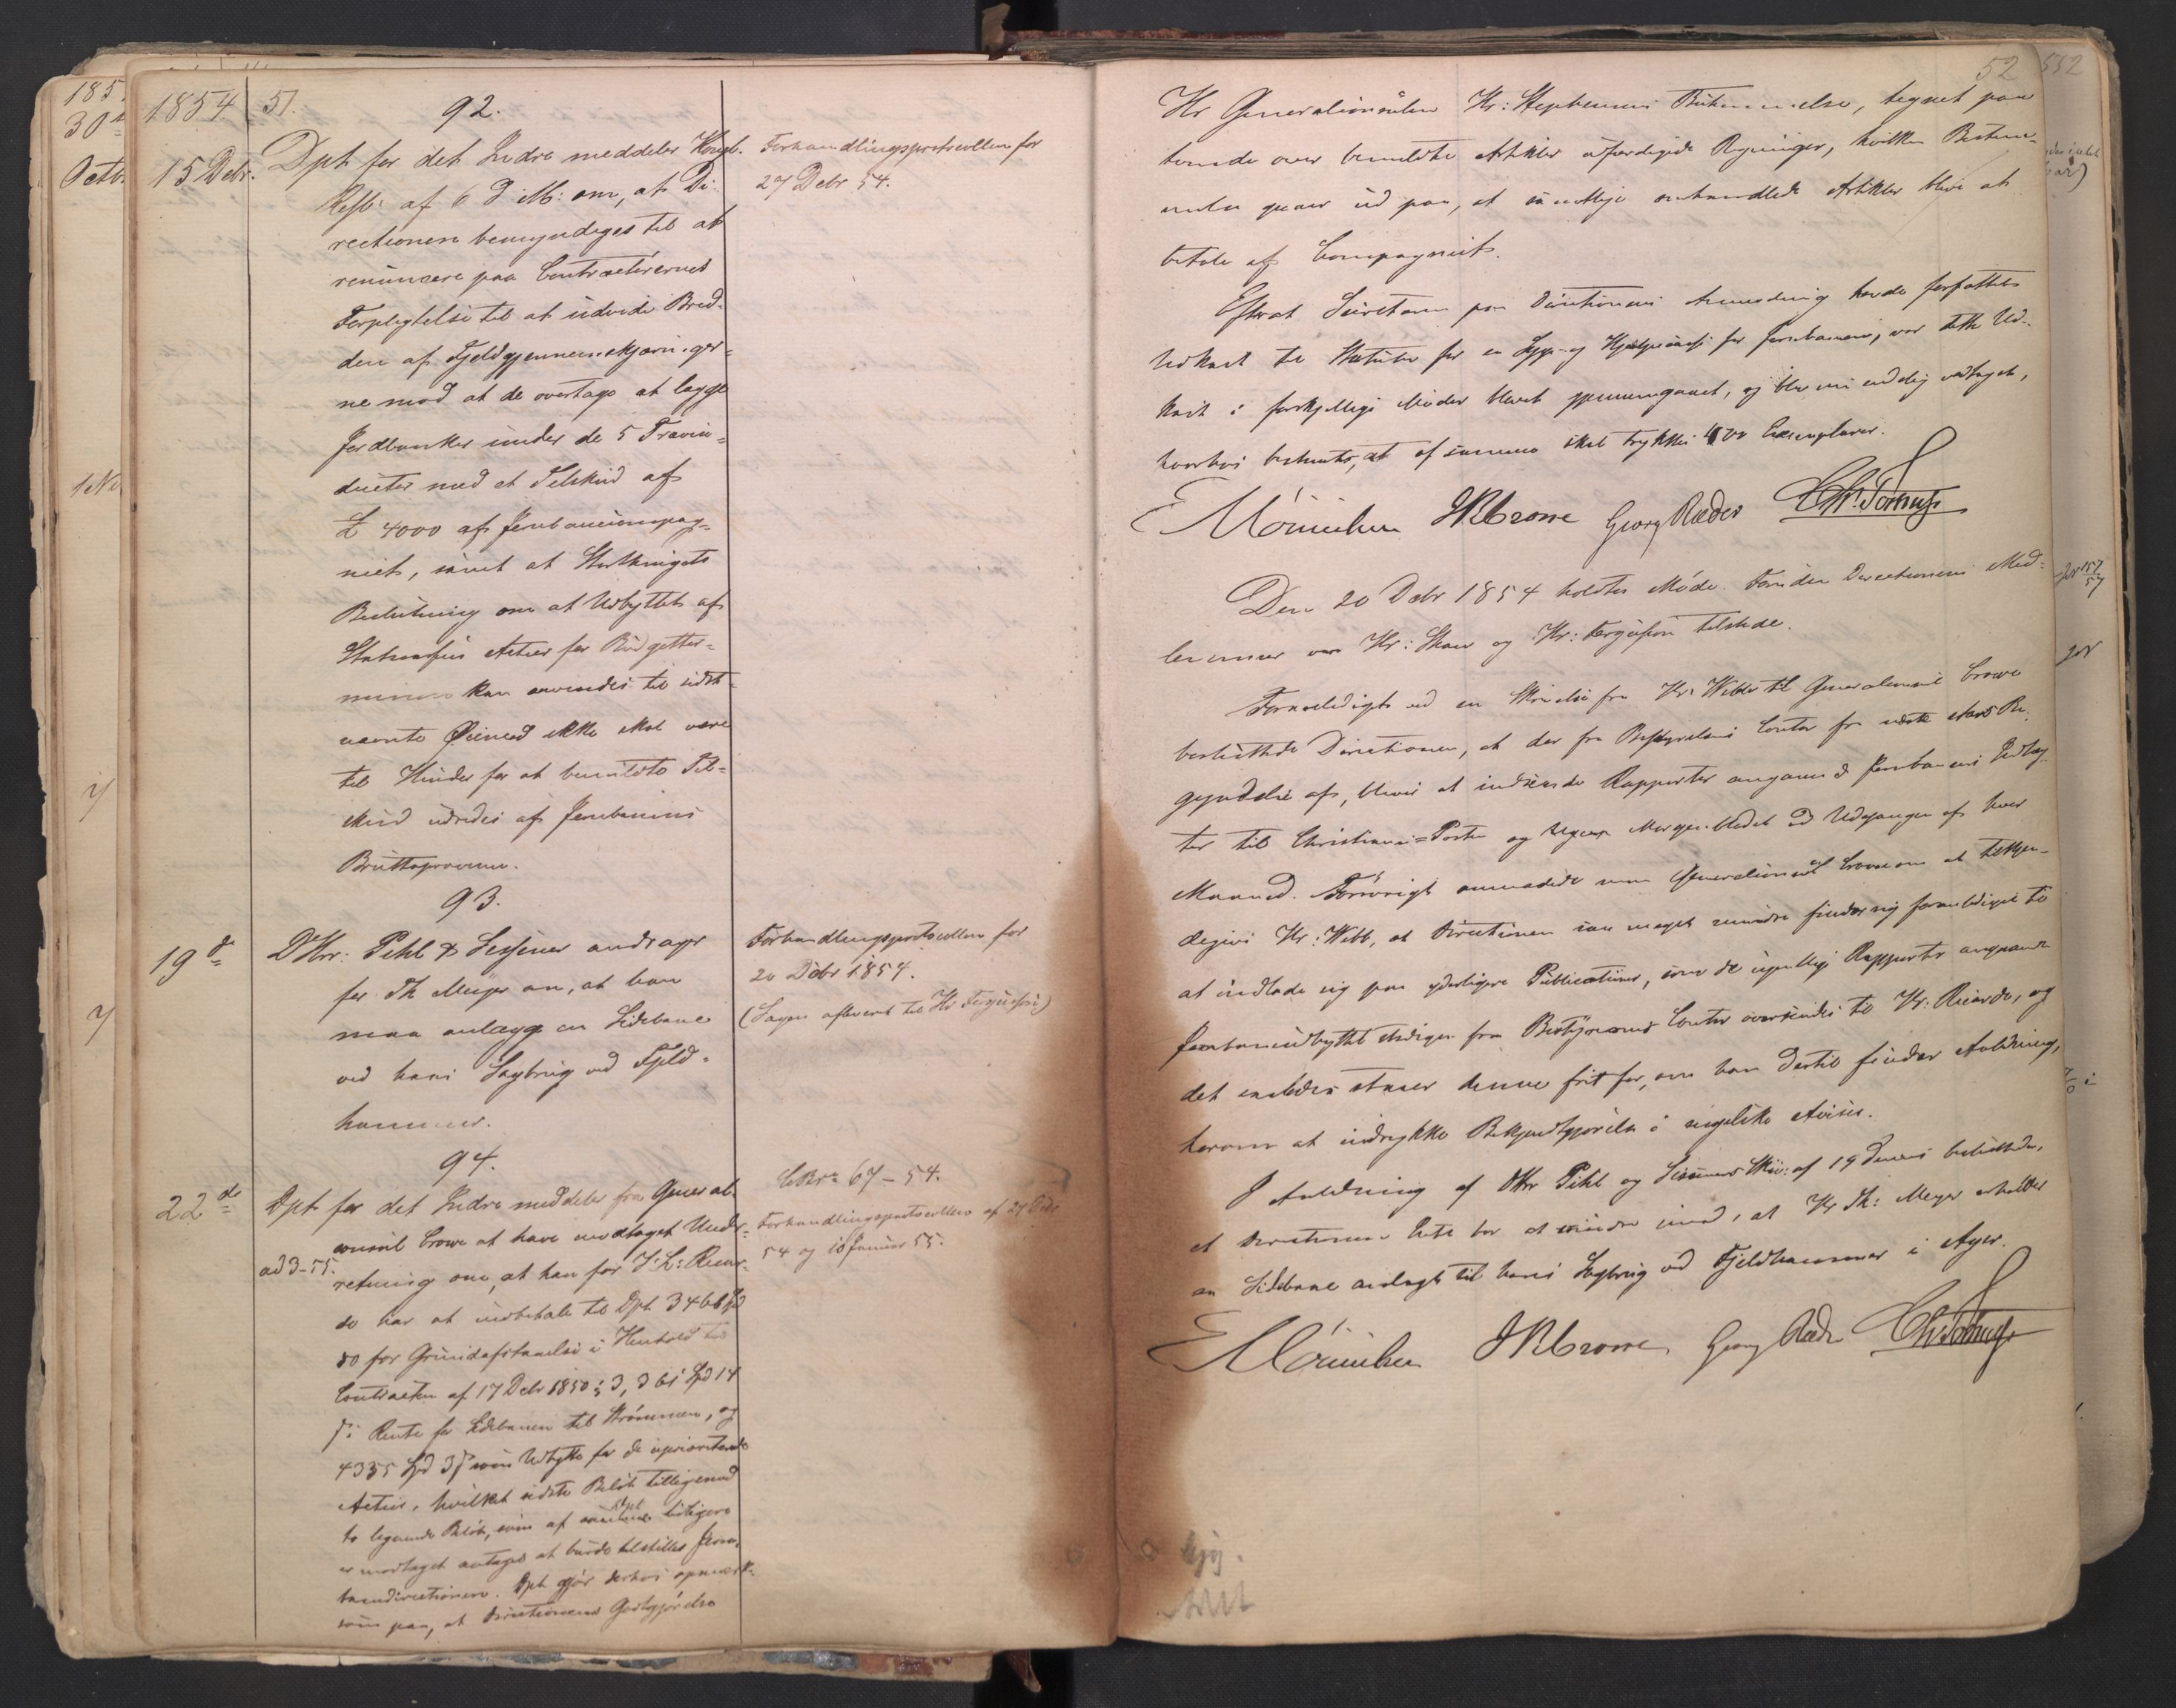 1854
51.
92.
15 Debr.
Dpt for det Indre meddeler Kongl.
Resl: af 6 d. M: om, at Di-
rectionen bemyndiges til at
renuncere paa Contracteurernes
Forpligtelse til at udvide Bred-
den af Fjeldgjennemskjæringer-
ne mod at de overtage at lægge
Jordbanker under de 5 Travia-
ducter med et Tilskud af
£ 4000 af Jernbanecompag-
niet, samt at Storthingets
Beslutning om at Udbyttet af
Statscassens Actier for Budgetter-
minen kan anvendes til sidst-
nævnte Øiemed ikke skal være
til Hinder for at bemeldte Til-
skud udredes af Jernbanens
Bruttoprovenu.
Forhandlingsprotocollen for
27 Debr 54.
93.
19 d
DHrr: Pihl & Lessner andrager
for Th Meyer om, at han
maa anlægge en Sidebane
ved hans Sagbrug ved Fjeld-
hammer.
Forhandlingsprotocollen for
20 Debr 1854.
(Sagen afleveret til Hr Fergusson)
94.
22 de
ad 3-55.
Dpt for det Indre meddeler fra General-
consul Crowe at have modtaget Under-
retning om, at han for J: L: Ricar-
do har at indbetale til Dpt 3466 Spd
80 for Grundafstaaelse i Henhold til
Contracten af 17 Debr 1850 § 3, 361 Spd 14
s i Rente for Sidebanen til Strømmen, og
4335 Spd 3 s som Udbytte for de uprioriterede
Actier, hvilket sidste Beløb tilligemed
to lignende Beløb, som af Dpt tidligere
er modtaget antages at burde tilstilles Jern-
banedirectionen. Dpt gjør derhos opmærk-
som paa, at Directionens Godtgjørelse
CBr. 67-54.
Forhandlingsprotocollen af 27 Debr
54 og 10 Januar 55.
52
Hr Generalconsulen Hr: Stephensons Bestemmelse, tegnet paa
tvende over bemeldte Artikler udfærdigede Regninger, hvilken Bestem-
melse gaaer ud paa, at samtlige omhandlede Artikler blive at
betale af Compagniet.
Efterat Secretairen paa Directionens Anmodning havde forfattet
Udkast til Statuter for en Syge- og Hjelpecasse for Jernbanen, var dette Ud-
kast i forskjellige Møder blevet gjennemgaaet, og blev nu endelig vedtaget,
hvorhos bestemtes, at af samme skal trykkes 400 Exemplarer.
Mørnichen JRCrowe Georg Ræder Chr. Torkups
Den 20 Debr 1854 holdtes Møde. Foruden Directionens Med-
lemmer var Hr: Shaw og Hr: Fergusson tilstede.
Foranledigt ved en Skrivelse fra Hr. Webb til Generalconsul Crowe
besluttede Directionen, at der fra Bestyrelsens Contor fra næste Aars Be-
gyndelse af, bliver at indsende Rapporter angaaende Jernbanens Indtæg-
ter til Christiania-Posten og Morgenbladet ved Udgangen af hver
Maaned. Forøvrigt anmodede man Generalconsul Crowe om at tilkjen-
degive Hr: Webb, at Directionen saa meget mindre finder sig foranlediget til
at indlade sig paa yderligere Publicationer, som de ugentlige Rapporter angaaende
Jernbaneudbyttet stedigen fra Bestyrerens Contor oversendes til Hr: Ricardo, og
det saaledes staaer denne frit for, om han dertil finder Anledning,
herom at indrykke Bekjendtgjørelse i engelske Aviser.
I Anledning af DHrr Pihl og Lessners Skriv: af 19 dennes besluttede,
at Directionen Intet har at erindre imod, at Hr Th: Meyer erholder
en Sidebane anlagt til hans Sagbrug ved Fjeldhammer i Ager.
Mørnichen JRCrowe Georg Ræder Chr Torkups